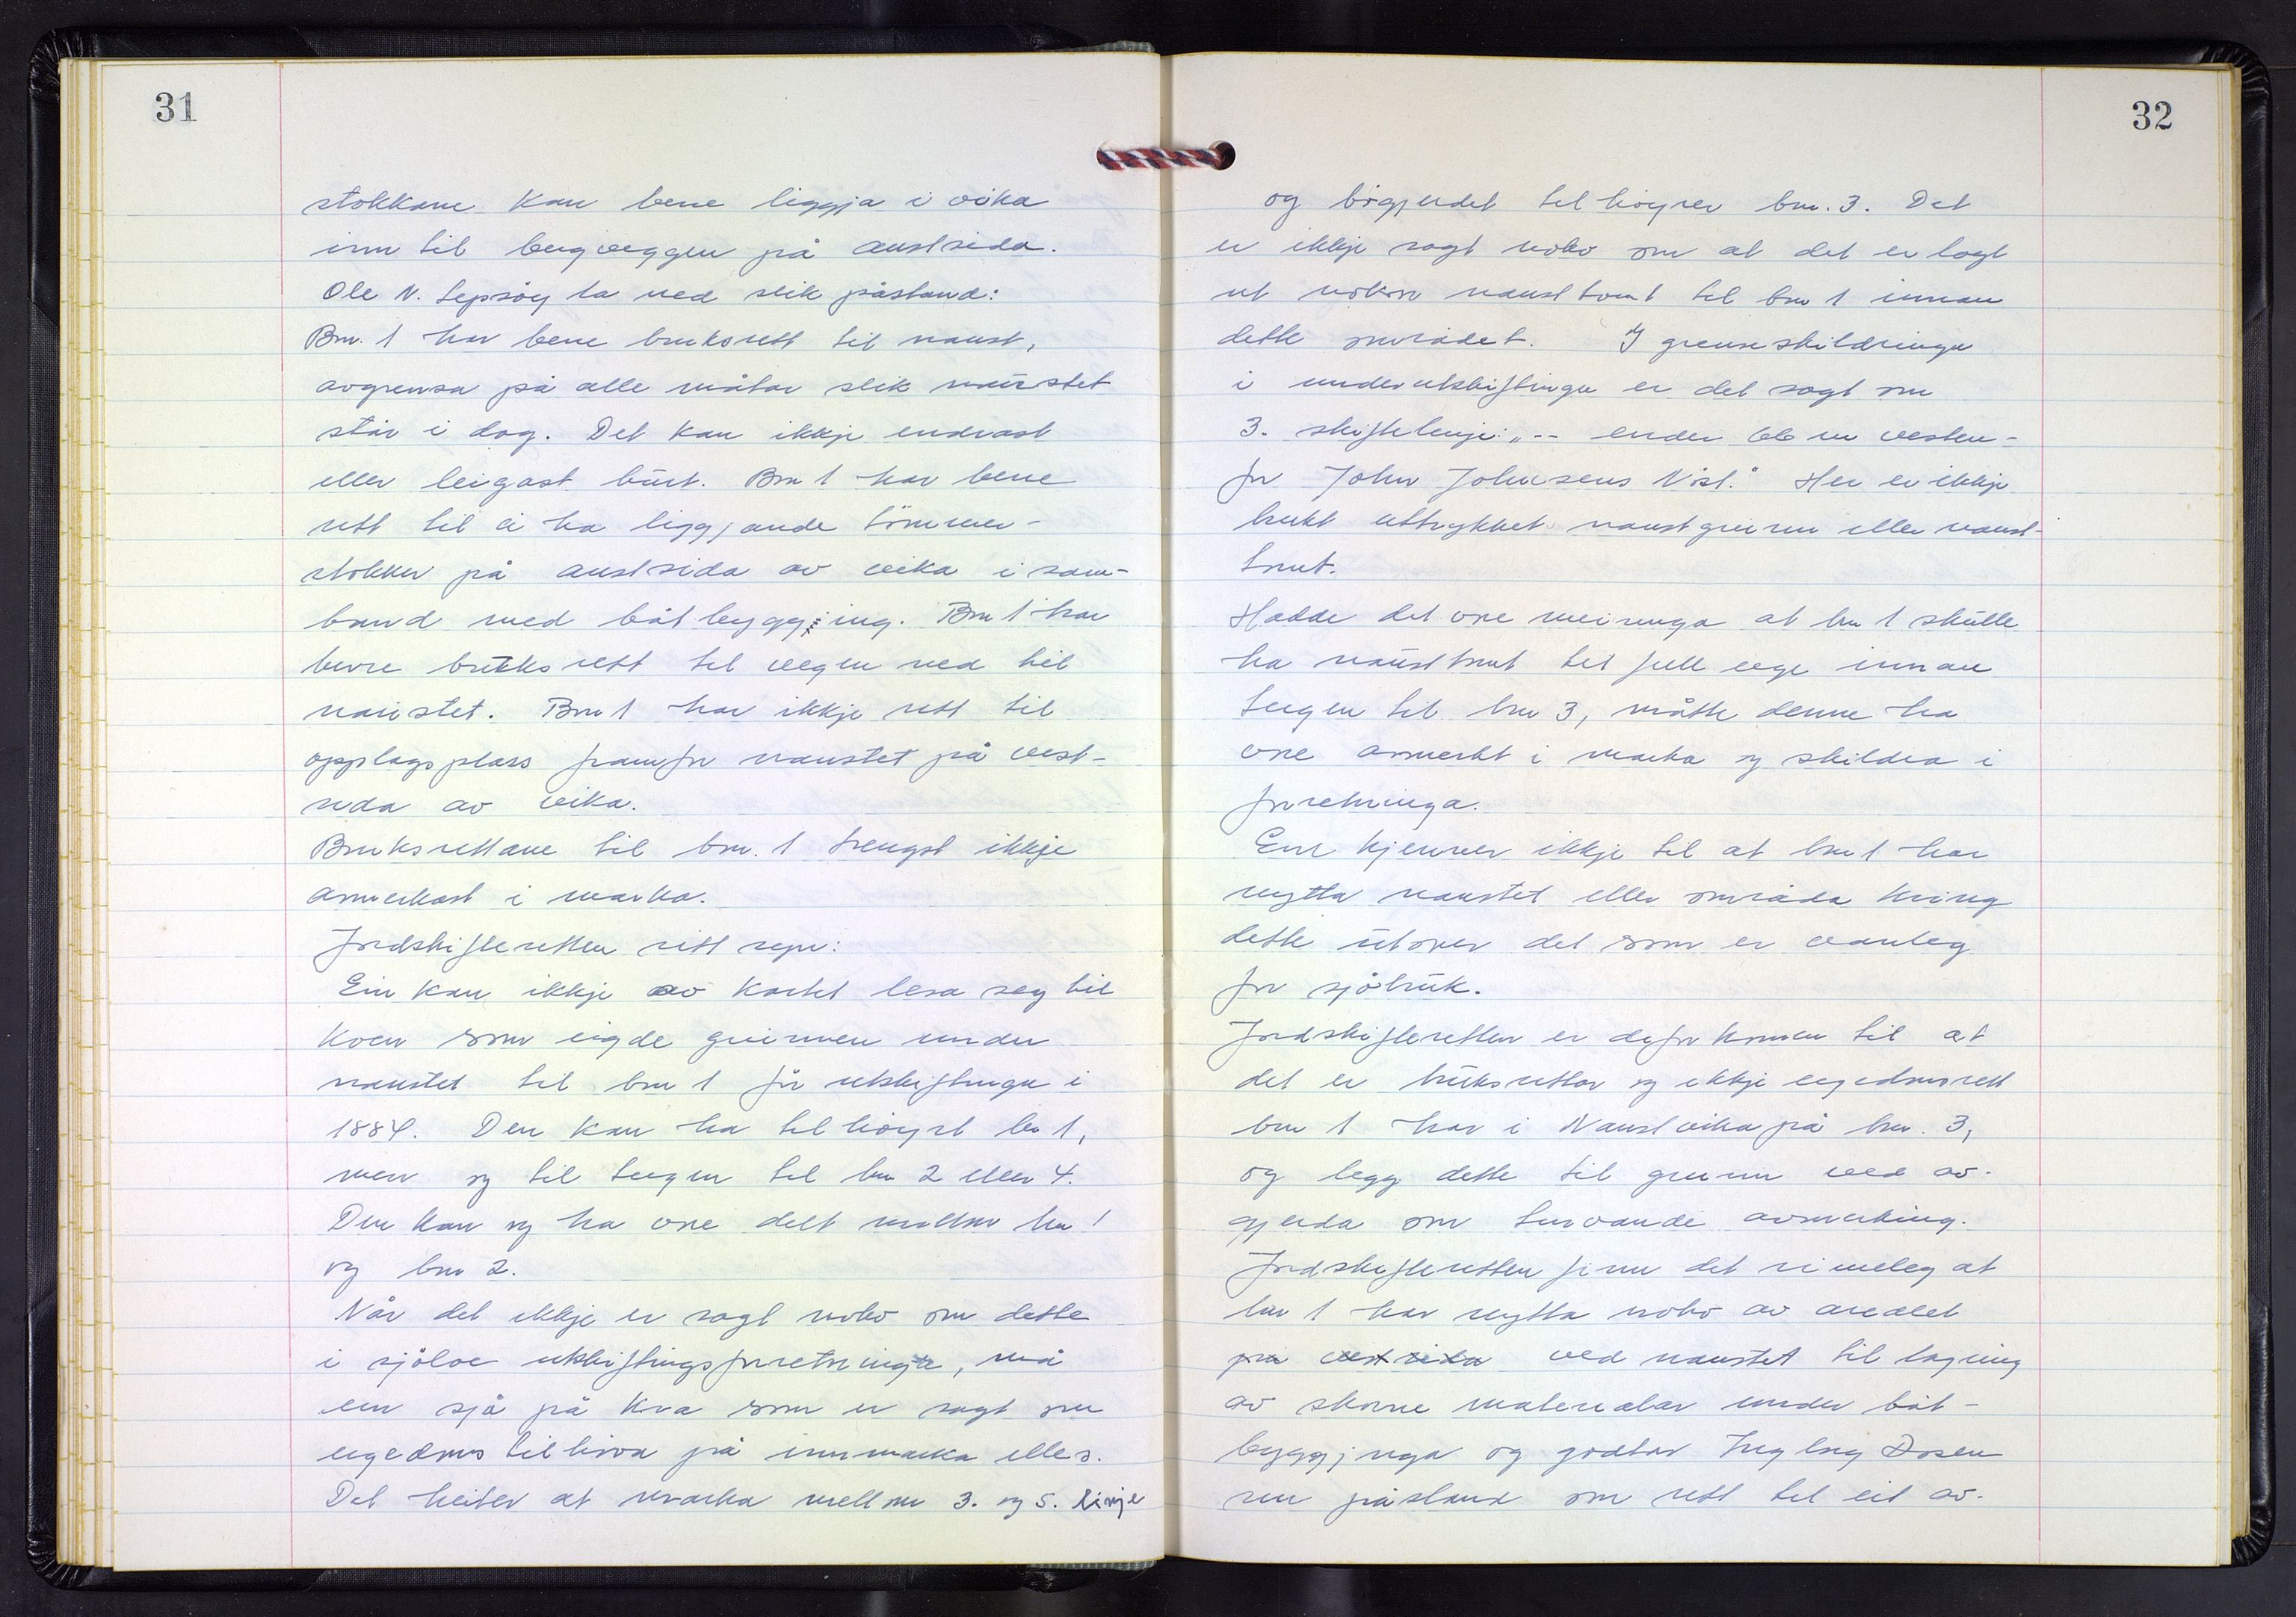 31
stokkane kan bere liggja i vika
inn til bergveggen på austsida.
Ole N. Lepsöy la ned slik påstand:
Bnr. 1 har bere bruksrett til naust,
avgrensa på alle måtar slik naustet
står i dag. Det kan ikkje endrast
eller leigast burt. Bnr 1 har bere
rett til å ha liggjande tömmer-
stokker på austsida av vika i sam-
band med båtbyggjing. Bnr 1 har
berre bruksrett til vegen ned til
naustet. Bnr 1 har ikkje rett til
opplagsplass framfor naustet på vest-
sida av vika.
Bruksrettane til bnr. 1 trengst ikkje
avmerkast i marka.
Jordskifteretten sitt syn:
Ein kan ikkje av kartet lesa seg til
kven som eigde grunnen under
naustet til bnr 1 før utskiftinga i
1884. Den kan ha tilhöyrt bnr 1,
men og til teigen til bnr 2 eller 4.
Den kan og ha vore delt mellom bnr 1
og bnr 2.
Når det ikkje er sagt noko om dette
i sjölve utskiftingsforretninga, må
ein sjå på kva som er sagt om
eigedomstilhöva på innmarka elles.
Det heiter at marka mellom 3. og 5. linje
32
og bögjerdet tilhöyrer bnr. 3. Det
er ikkje sagt noko om at det er lagt
ut nokon nausttomt til bnr 1 innan
dette området. I grenseskildringa
i underutskiftinga er det sagt om
3. skiftelinje: „-- ender 66 m vesten-
for John Johnsens Nöst." Her er ikkje
brukt uttrykket naustgrunn eller naust-
tomt.
Hadde det vore meininga at bnr 1 skulle
ha nausttomt til full eige innan
teigen til bnr 3, måtte denne ha
vore avmerkt i marka og skildra i
forretninga.
Ein kjenner ikkje til at bnr 1 har
nytta naustet eller områda kring
dette utover det som er vanleg
for sjöbruk.
Jordskifteretten er difor komen til at
det er bruksrettar og ikkje eigedomsrett
bnr 1 har i Naustvika på bnr. 3,
og legg dette til grunn ved av-
gjerda om turvande avmerking.
Jordskifteretten finn det rimeleg at
bnr 1 har nytta noko av arealet
på vestsida ved naustet til lagring
av skorne materialar under båt-
byggjinga og godtar Ingborg Dosen
sin påstand om rett til eit av-